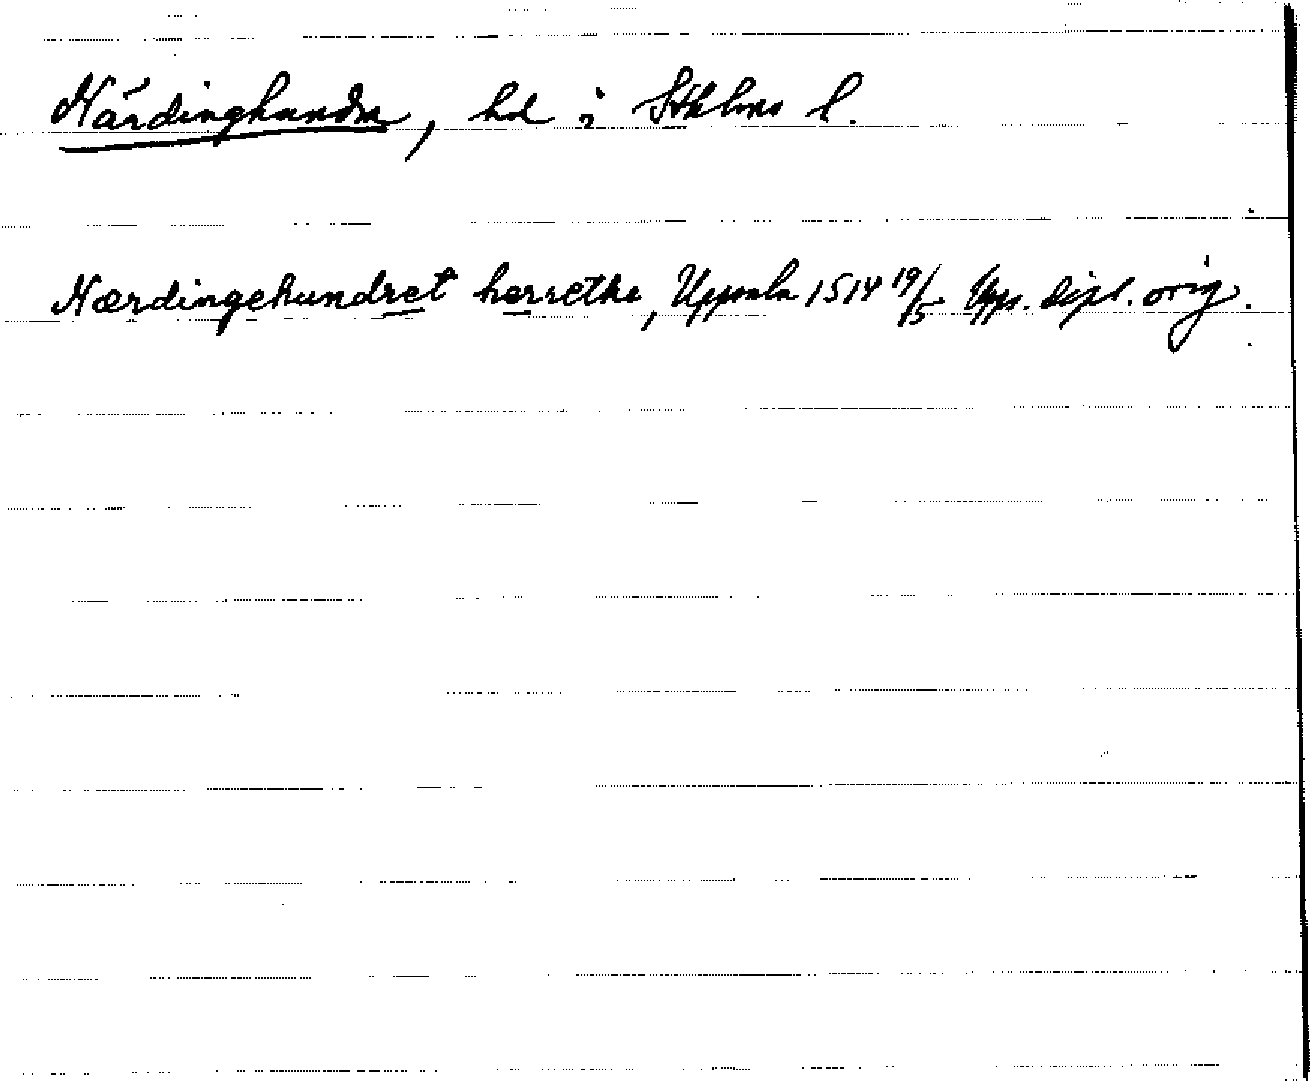 Närdinghundra, hd i Sthlms l.
Nærdingehundret herrethe, Uppsala 1514 19/5 Upps. dipl. orig.